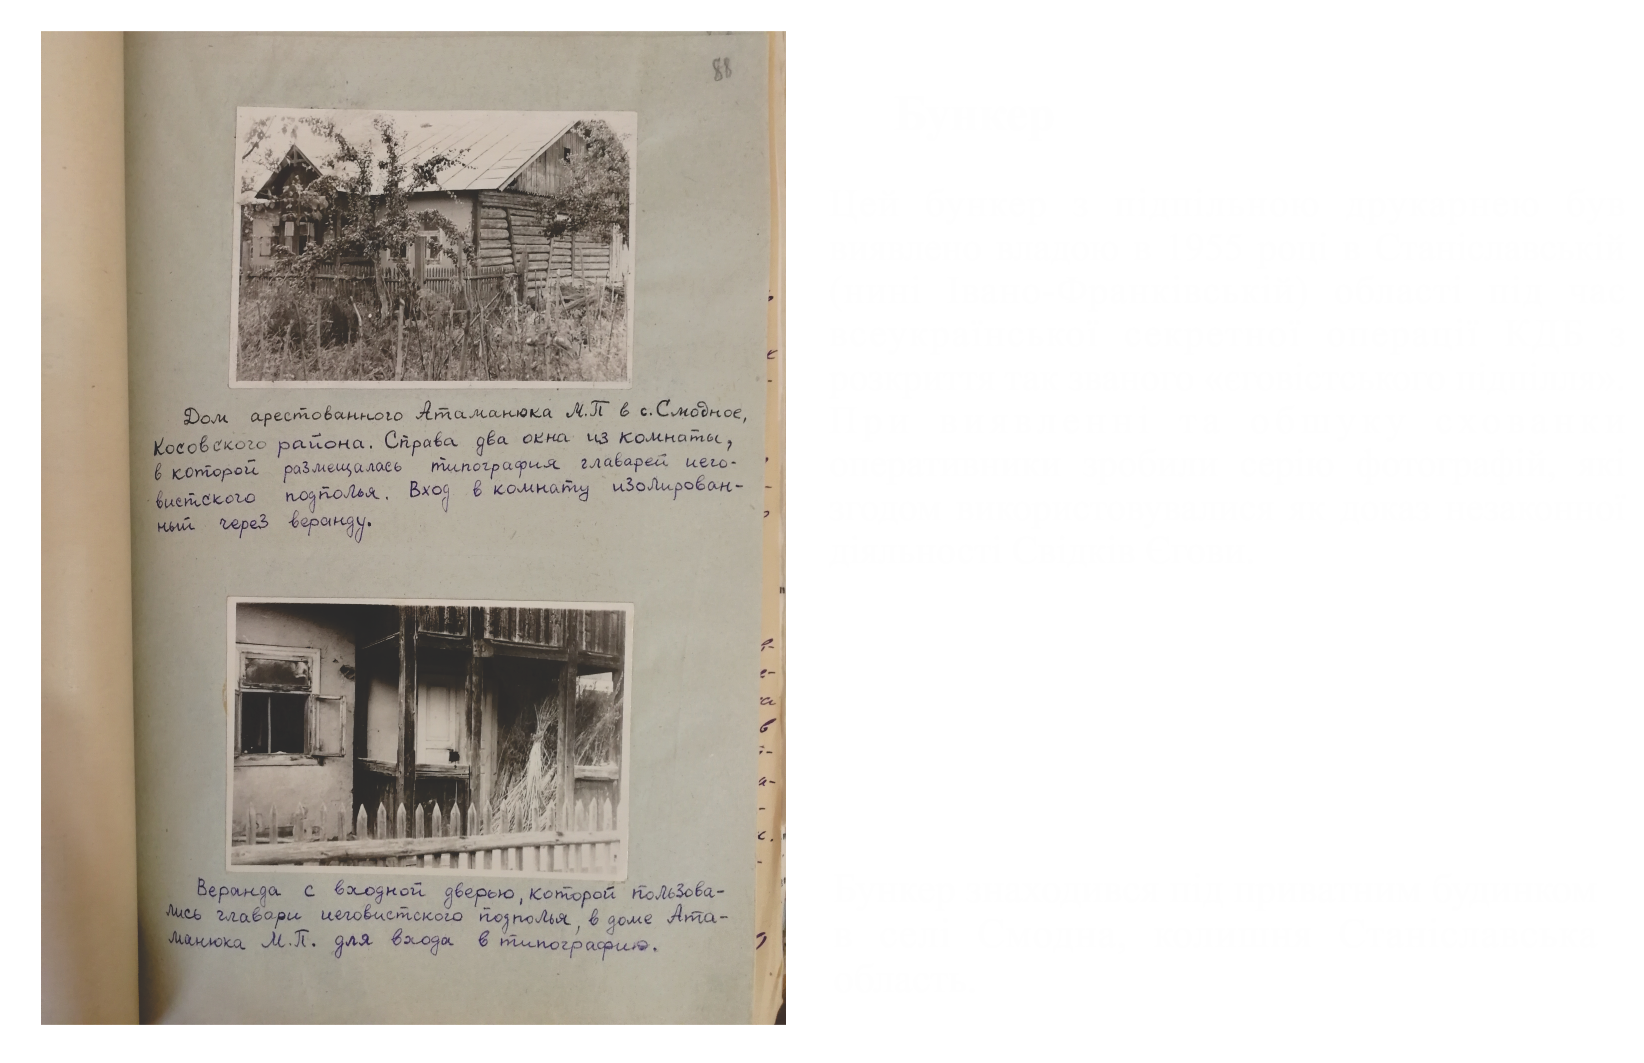 88
Дом арестованного Атаманюка М.П в с. Смодное,
Косовского района. Справа два окна из комнаты,
в которой размещалась типография главарей иего-
вистского подполья. Вход в комнату изолирован-
ный через веранду.
Веранда с входной дверью, которой пользова-
лись главари иеговистского подполья, в доме Ата-
манюка М.П. для входа в типографию.